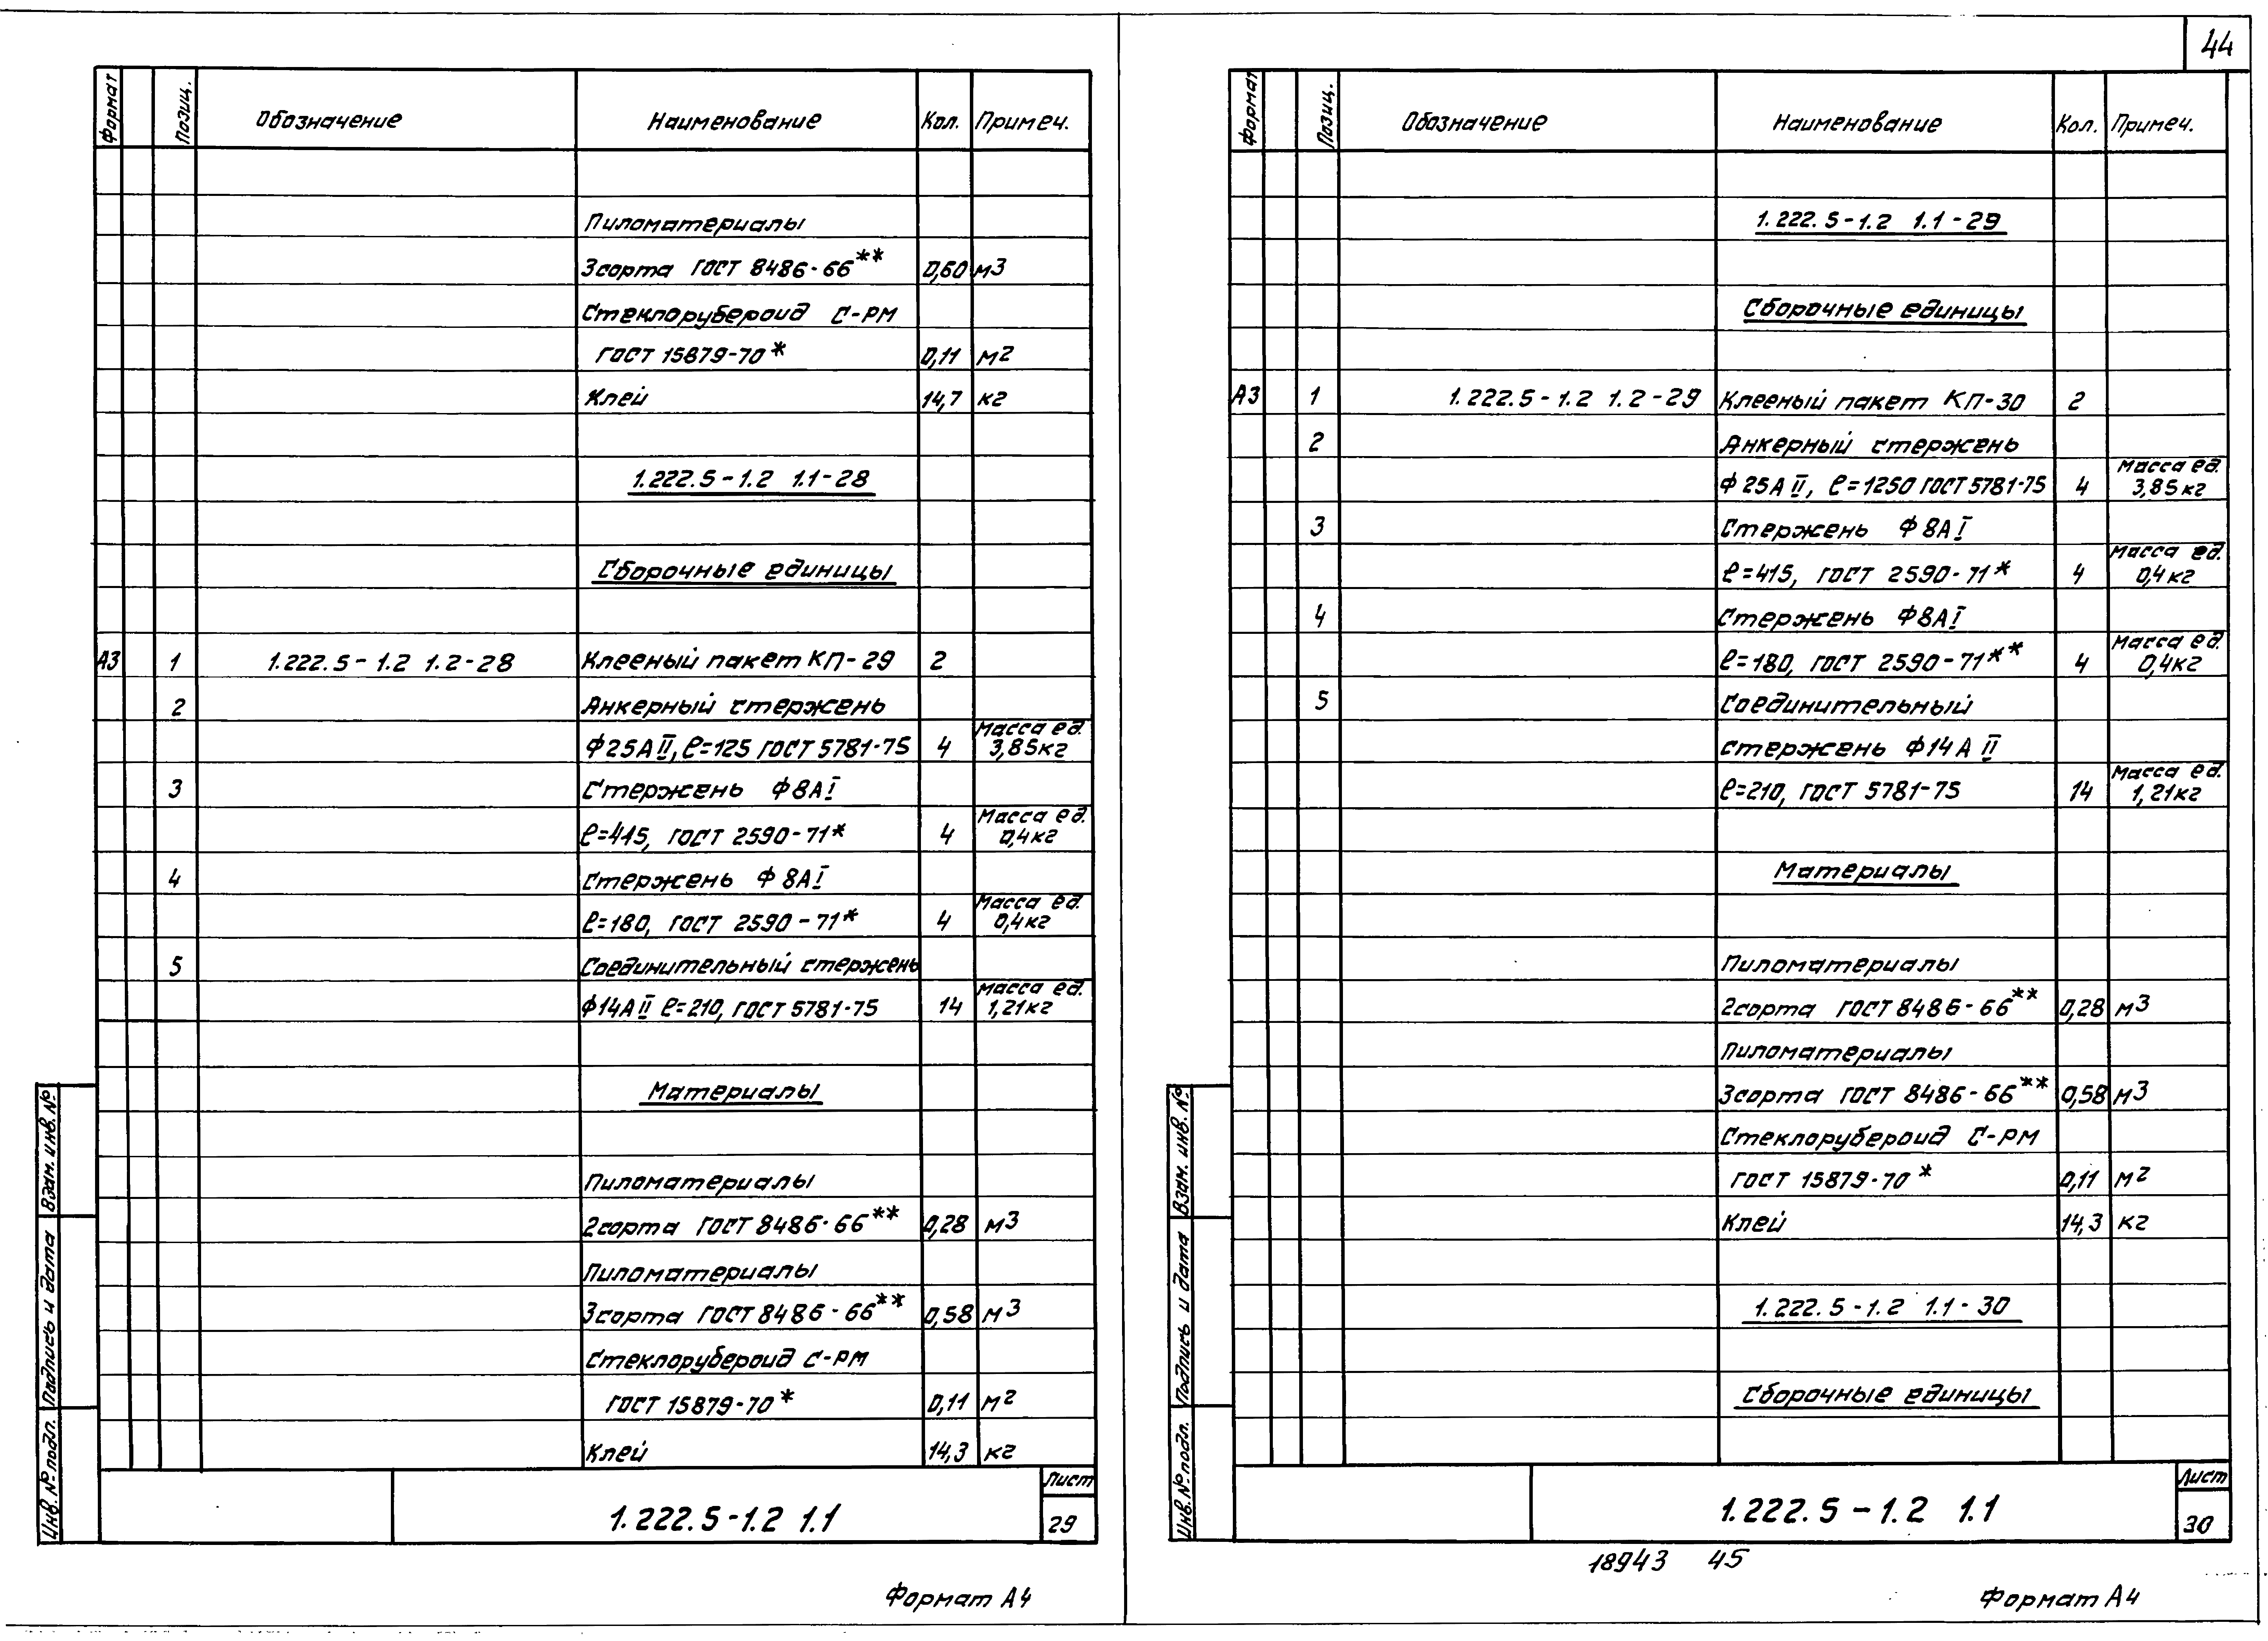 44
Формат Позиц. Обозначение Наименование Кол. Примеч.
Пиломатериалы
3сорта ГОСТ 8486-66** 0,60 м3
Стеклорубероид С-РМ
ГОСТ 15879-70* 0,11 м2
Клей 14,7 кг
1.222.5-1.2 1.1-28
Сборочные единицы
А3 1 1.222.5-1.2 1.2-28 Клееный пакет КП-29 2
2 Анкерный стержень
Ф25АII, ℓ=125 ГОСТ 5781-75 4 Масса ед. 3,85кг
3 Стержень Ф8АI
ℓ=415, ГОСТ 2590-71* 4 Масса ед. 0,4кг
4 Стержень Ф8АI
ℓ=180, ГОСТ 2590-71* 4 Масса ед. 0,4кг
5 Соединительный стержень
Ф14АII ℓ=210, ГОСТ 5781-75 14 Масса ед. 1,21кг
Материалы
Пиломатериалы
2сорта ГОСТ 8486-66** 0,28 м3
Пиломатериалы
3сорта ГОСТ 8486-66** 0,58 м3
Стеклорубероид С-РМ
ГОСТ 15879-70* 0,11 м2
Клей 14,3 кг
Взам. инв. №
Подпись и дата
Инв. № подл.
1.222.5-1.2 1.1
Лист
29
Формат А4
Формат Позиц. Обозначение Наименование Кол. Примеч.
1.222.5-1.2 1.1-29
Сборочные единицы
А3 1 1.222.5-1.2 1.2-29 Клееный пакет КП-30 2
2 Анкерный стержень
Ф25АII, ℓ=1250 ГОСТ 5781-75 4 Масса ед. 3,85кг
3 Стержень Ф8АI
ℓ=415, ГОСТ 2590-71* 4 Масса ед. 0,4кг
4 Стержень Ф8АI
ℓ=180, ГОСТ 2590-71** 4 Масса ед. 0,4кг
5 Соединительный
стержень Ф14АII
ℓ=210, ГОСТ 5781-75 14 Масса ед. 1,21кг
Материалы
Пиломатериалы
2сорта ГОСТ 8486-66** 0,28 м3
Пиломатериалы
3сорта ГОСТ 8486-66** 0,58 м3
Стеклорубероид С-РМ
ГОСТ 15879-70* 0,11 м2
Клей 14,3 кг
1.222.5-1.2 1.1-30
Сборочные единицы
Взам. инв. №
Подпись и дата
Инв. № подл.
1.222.5-1.2 1.1
Лист
30
18943 45
Формат А4